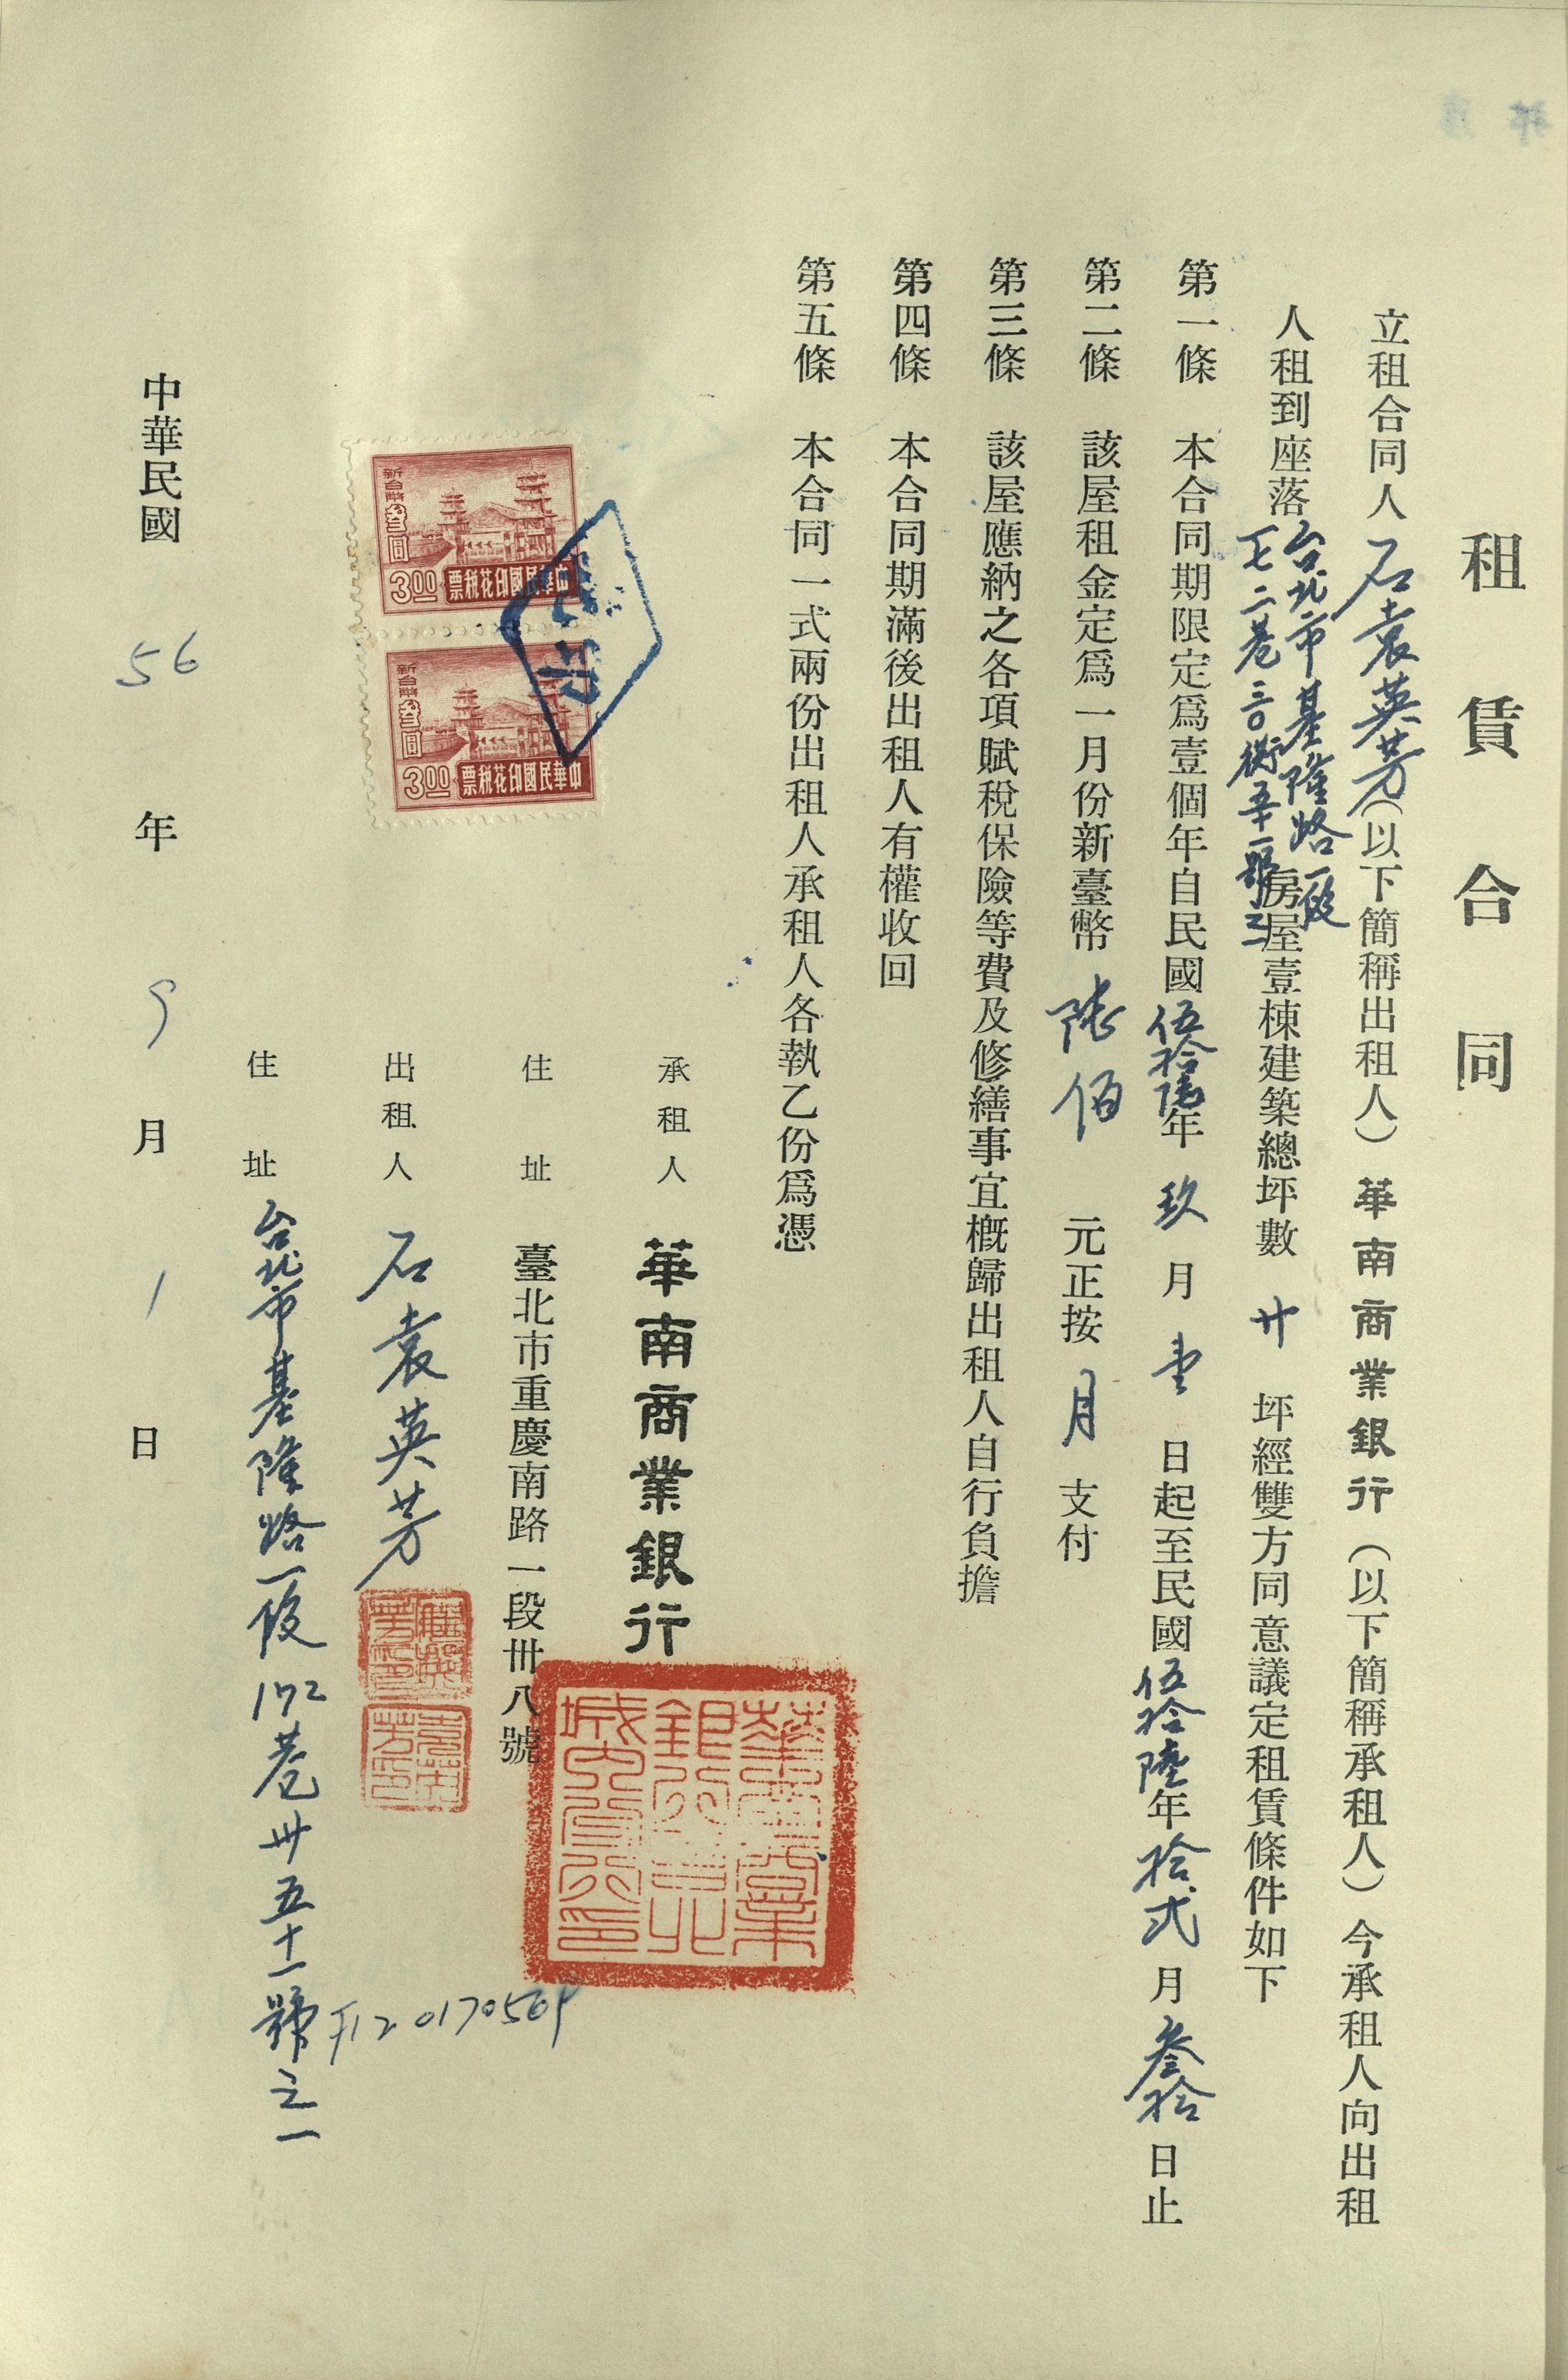 租賃合同
立租合同人石袁英芳(以下簡稱出租人)華南商業銀行(以下簡稱承租人)今承租人向出租
人租到座落台北市基隆路一段一七二巷三〇衖五十一號之一房屋壹棟建築總坪數廿坪經雙方同意議定租賃條件如下
第一條 本合同期限定爲壹個年自民國伍拾陸年玖月壹日起至民國伍拾陸年拾弍月叁拾日止
第二條 該屋租金定爲一月份新臺幣陸佰元正按月支付
第三條 該屋應納之各項賦稅保險等費及修繕事宜槪歸出租人自行負擔
第四條 本合同期滿後出租人有權收回
第五條 本合同一式兩份出租人承租人各執乙份爲憑
承租人 華南商業銀行
住址 臺北市重慶南路一段卅八號
華南商業銀行臺北城內分行印
出租人 石袁英芳
袁英芳印
住址 台北市基隆路一段172巷卅五十一號之一
中華民國56年9月1日
新台幣叁圓
3.00
中華民國印花稅票
新台幣叁圓
3.00
中華民國印花稅票